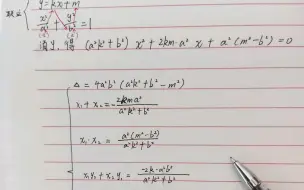 联立 { y = kx + m
x²/a² + y²/b² = 1
消y得 (a²k²+b²) x² + 2km·a² x + a²(m²-b²) = 0
Δ = 4a²b² (a²k²+b² - m²)
x₁ + x₂ = -2kma² / a²k²+b²
x₁·x₂ = a²(m²-b²) / a²k²+b²
x₁y₂ + x₂y₁ = -2k·a²b² / a²k²+b²